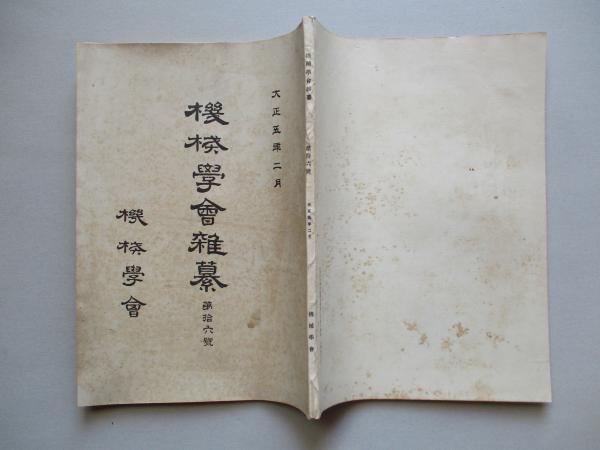 大正五年二月
機械學會雑纂
第拾六號
機械學會
機械學會雑纂
第拾六號
大正五年二月
機械學會